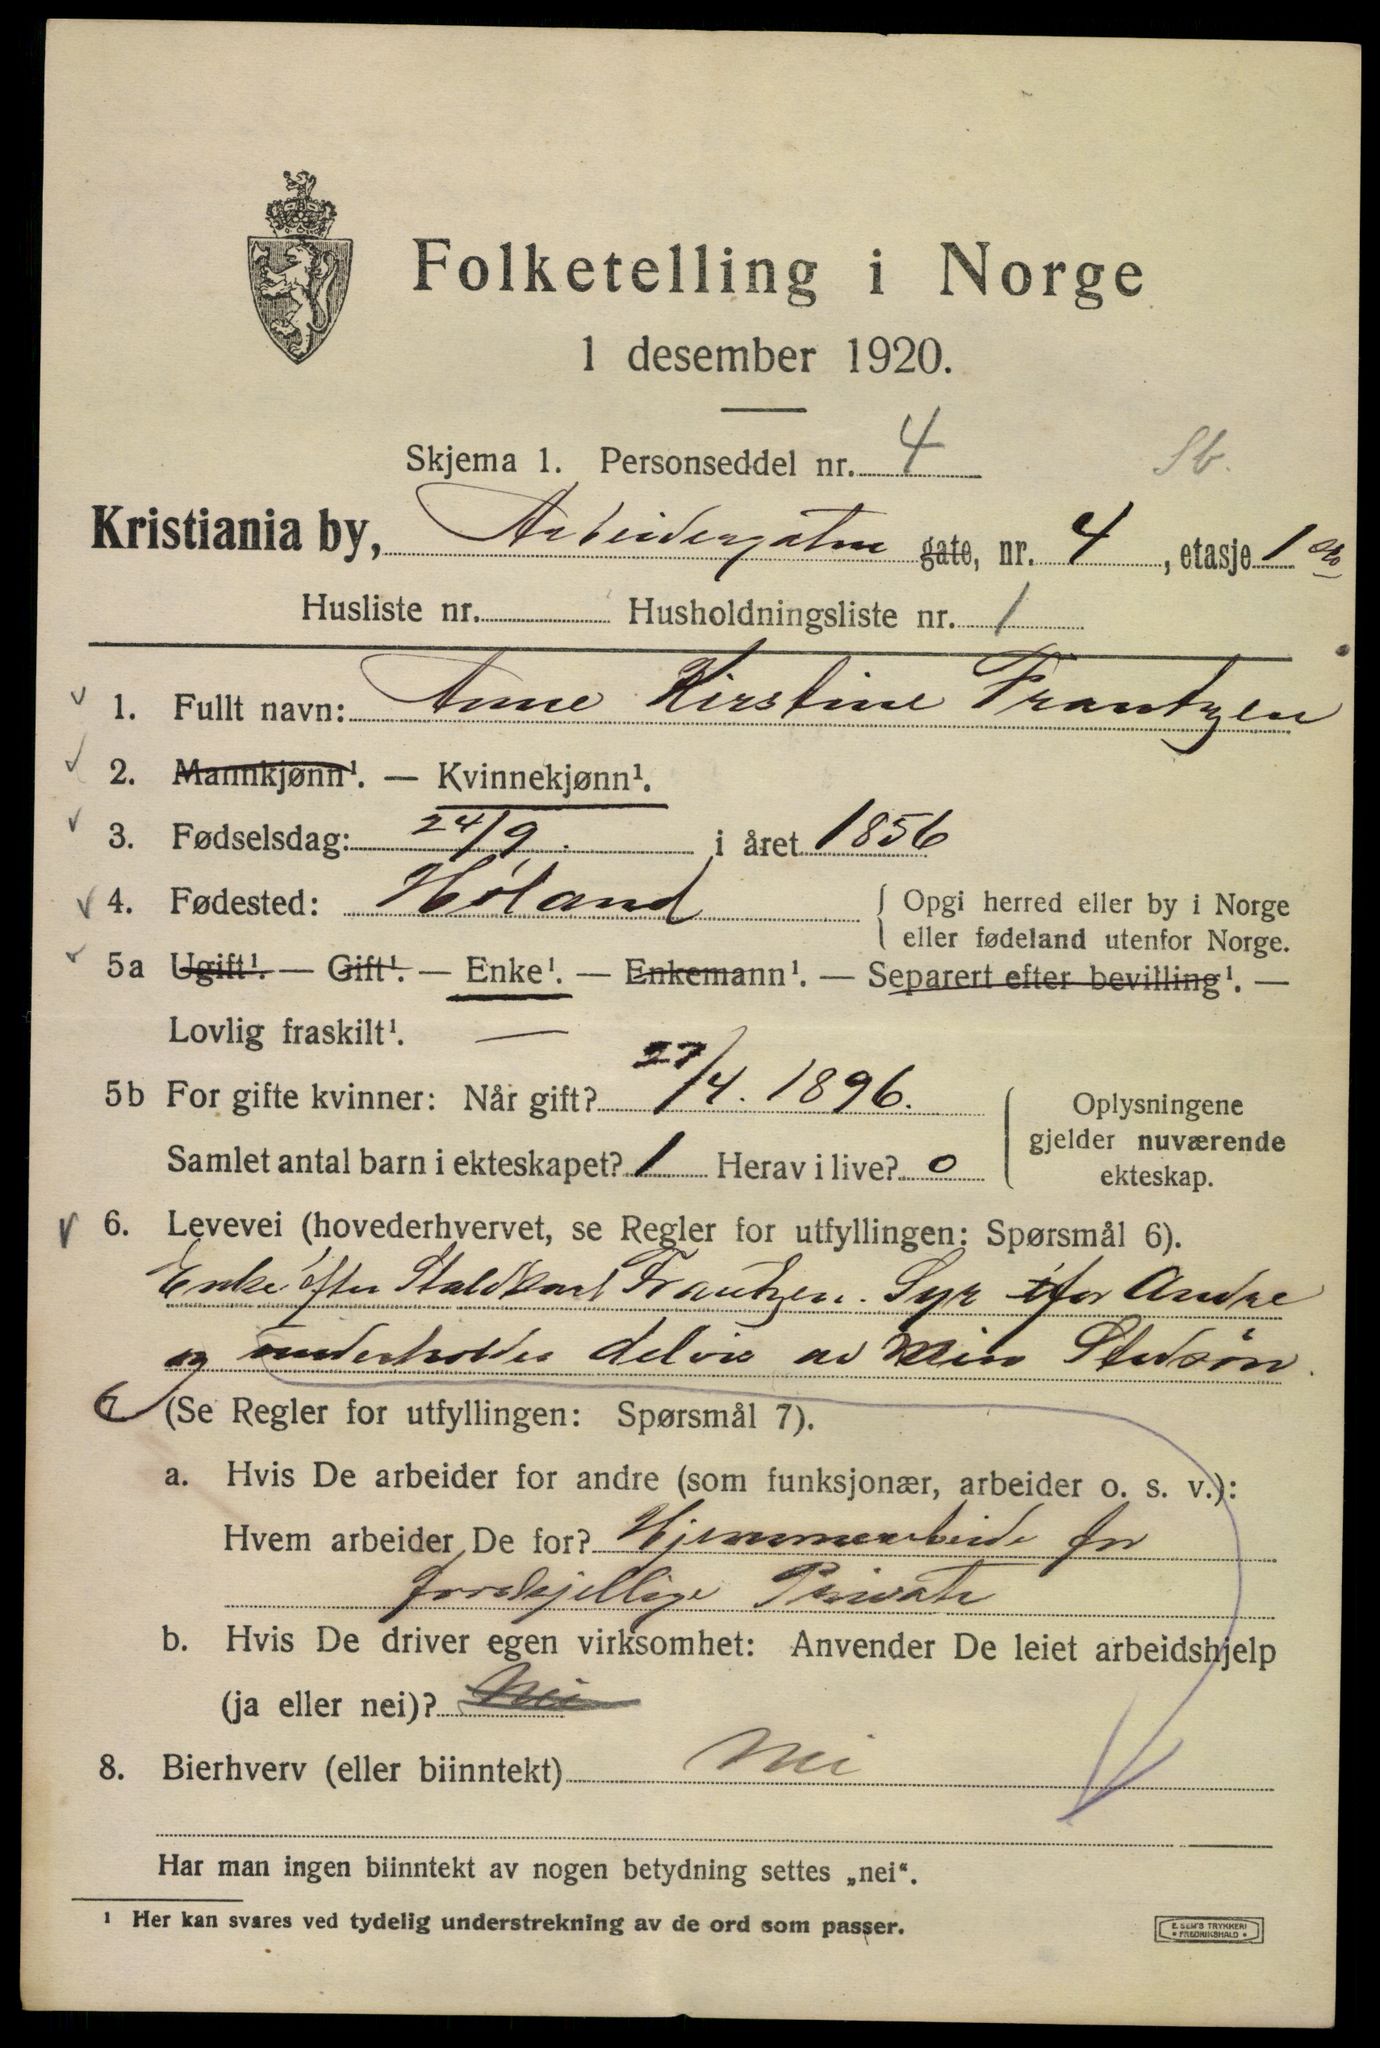 Folketelling i Norge
1 desember 1920.
Skjema 1. Personseddel nr. 4 Sb.
Kristiania by, Arbeidergatene gate, nr. 4, etasje 1
Husliste nr. Husholdningsliste nr. 1
1. Fullt navn: Anne Kirstine Frantzen
2. Mannkjønn¹. — Kvinnekjønn¹.
3. Fødselsdag: 24/9. i året 1856
4. Fødested: Høland { Opgi herred eller by i Norge
eller fødeland utenfor Norge.
5a Ugift¹. — Gift¹. — Enke¹. — Enkemann¹. — Separert efter bevilling¹. —
Lovlig fraskilt¹. —
5b For gifte kvinner: Når gift? 27/4. 1896.
Samlet antal barn i ekteskapet? 1 Herav i live? 0
Oplysningene
gjelder nuværende
ekteskap.
6. Levevei (hovederhvervet, se Regler for utfyllingen: Spørsmål 6).
Enke efter Staldkarl Frantzen. Syr for Andre
og underholdes delvis av Min Stedsøn.
7 (Se Regler for utfyllingen: Spørsmål 7).
a. Hvis De arbeider for andre (som funksjonær, arbeider o. s. v.):
Hvem arbeider De for? Hjemmearbeide for
forskjellige Private
b. Hvis De driver egen virksomhet: Anvender De leiet arbeidshjelp
(ja eller nei)? Nei
8. Bierhverv (eller biinntekt) Nei
Har man ingen biinntekt av nogen betydning settes „nei“.
¹ Her kan svares ved tydelig understrekning av de ord som passer.
E. SEM'S TRYKKERI
• FREDRIKSHALD •